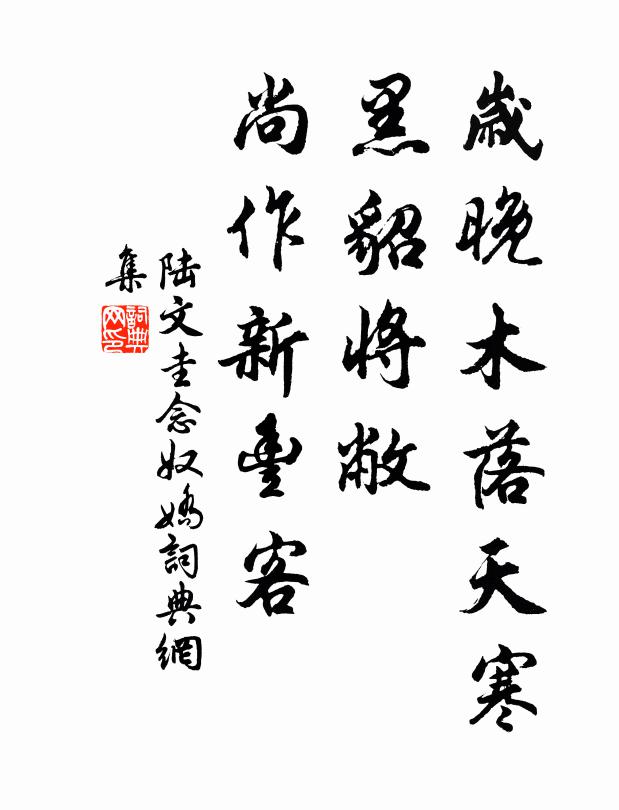 歲晚木落天寒
黑貂將敝
尚作新豐客
陸文圭念奴嬌詞典網
集
詞典
网印